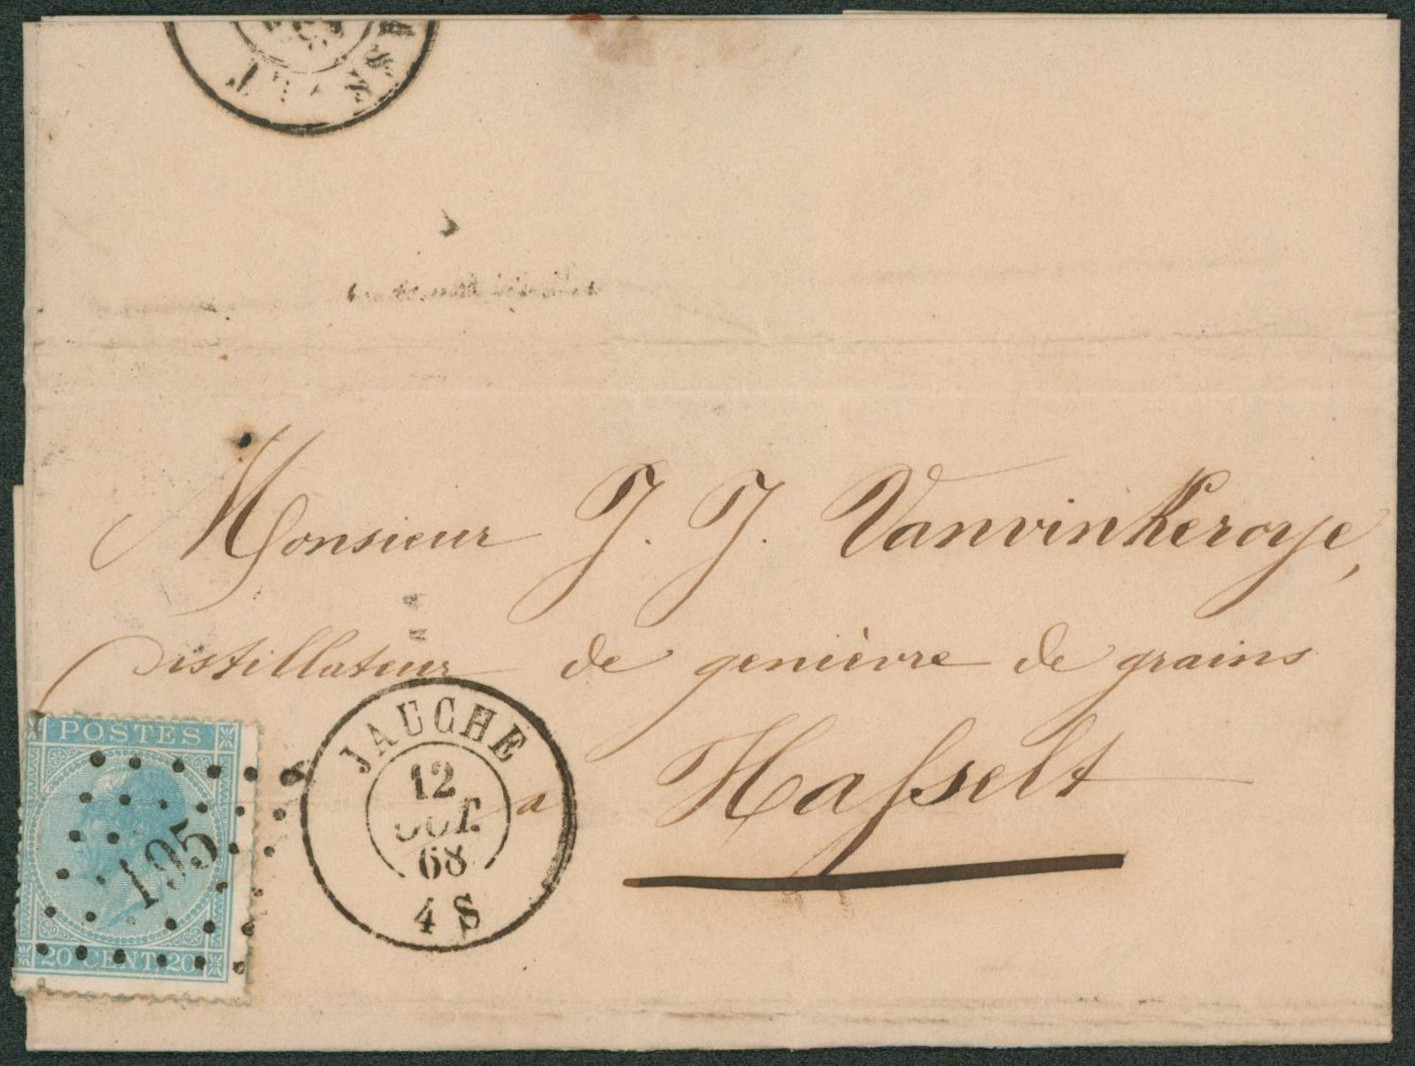 Monsieur J. J. Vanvinkeroye,
Distillateur de genièvre de grains
a Hasselt
POSTES
195
20 CENT. 20
JAUCHE
12
OCT.
68
4 S